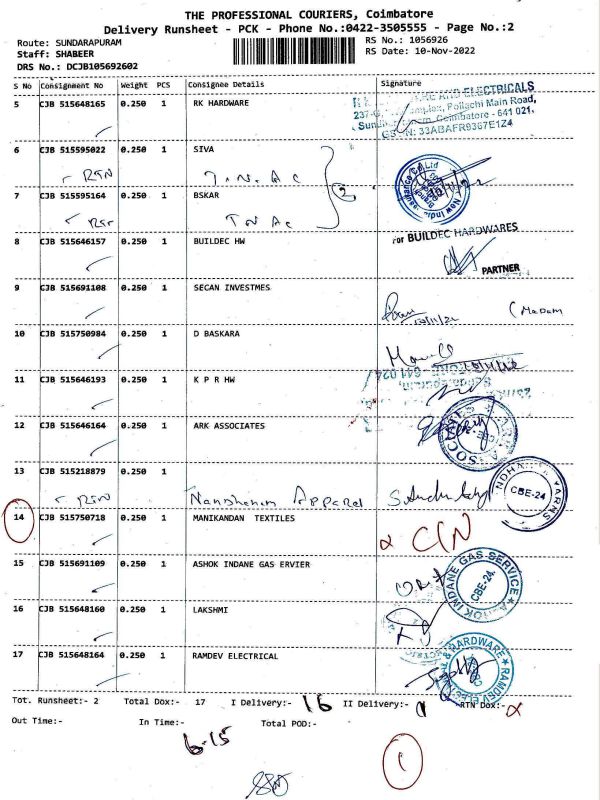 THE PROFESSIONAL COURIERS, Coimbatore
Delivery Runsheet - PCK - Phone No.:0422-3505555 - Page No.:2
Route: SUNDARAPURAM RS No.: 1056926
Staff: SHABEER RS Date: 10-Nov-2022
DRS No.: DCJB105692602
S No Consignment No Weight PCS Consignee Details Signature
5 CJB 515648165 0.250 1 RK HARDWARE
ARE AND ELECTRICALS
Pollachi Main Road,
Coimbatore - 641 021.
33ABAFR9367E1Z4
6 CJB 515595022 0.250 1 SIVA
RTN T.N.A.C 2
New India
7 CJB 515595164 0.250 1 BSKAR
RTN T N A C
8 CJB 515646157 0.250 1 BUILDEC HW
For BUILDEC HARDWARES
PARTNER
9 CJB 515691108 0.250 1 SECAN INVESTMES
(Madam
10 CJB 515750984 0.250 1 D BASKARA
11 CJB 515646193 0.250 1 K P R HW
12 CJB 515646164 0.250 1 ARK ASSOCIATES
13 CJB 515218879 0.250 1
RTN Apparel
YARNS
CBE-24
14 CJB 515750718 0.250 1 MANIKANDAN TEXTILES
C/N
15 CJB 515691109 0.250 1 ASHOK INDANE GAS ERVIER
ASHOK INDANE GAS SERVICE
CBE-24
16 CJB 515648160 0.250 1 LAKSHMI
17 CJB 515648164 0.250 1 RAMDEV ELECTRICAL
RAMDEV ELECTRIC & HARDWARE
Tot. Runsheet:- 2 Total Dox:- 17 I Delivery:- 16 II Delivery:- RTN Dox:-
Out Time:- In Time:- Total POD:-
6-15
1